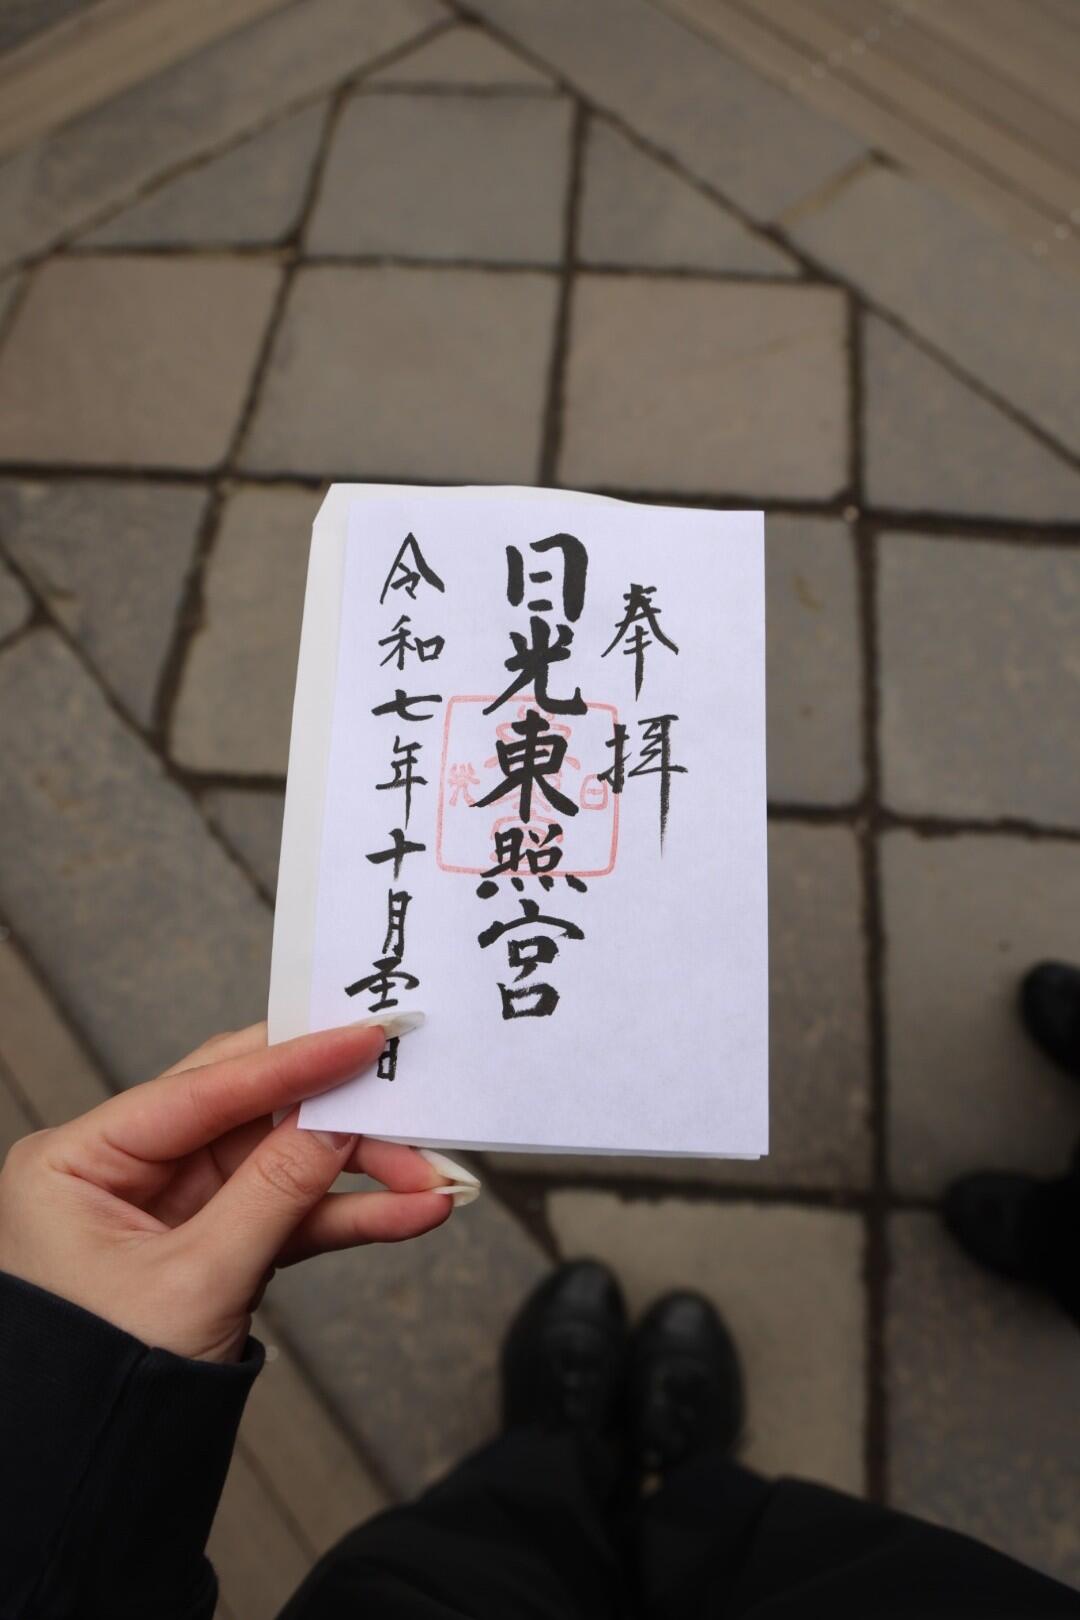 奉拝
日光東照宮
日
光
令和七年十月 日